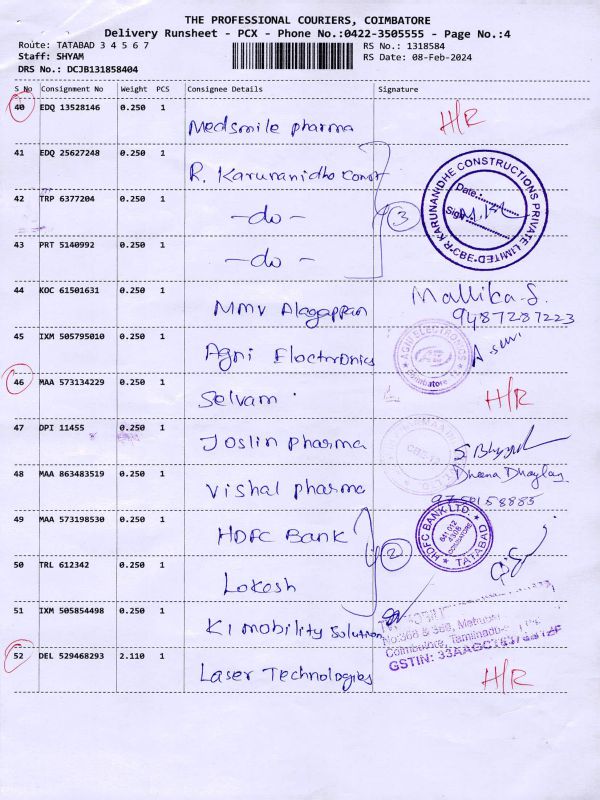 THE PROFESSIONAL COURIERS, COIMBATORE
Delivery Runsheet - PCX - Phone No.:0422-3505555 - Page No.:4
Route: TATABAD 3 4 5 6 7
Staff: SHYAM
DRS No.: DCJB131858404
RS No.: 1318584
RS Date: 08-Feb-2024
S No Consignment No Weight PCS Consignee Details Signature
40 EDQ 13528146 0.250 1
Medsmile pharma H/R
41 EDQ 25627248 0.250 1
R. Karunanidhe const
42 TRP 6377204 0.250 1
-do-
3
R KARUNANIDHE CONSTRUCTIONS PRIVATE LIMITED
CBE
Date:
Sign
43 PRT 5140992 0.250 1
-do-
44 KOC 61501631 0.250 1
MMV Alagappan
Mallika-S.
9487287223
45 IXM 505795010 0.250 1
Agni Electronics
AGNI ELECTRONICS
Coimbatore
46 MAA 573134229 0.250 1
Selvam H/R
47 DPI 11455 0.250 1
Joslin pharma
48 MAA 863483519 0.250 1
Vishal pharma
49 MAA 573198530 0.250 1
HDFC Bank
2
HDFC BANK LTD.
TATABAD
COIMBATORE
50 TRL 612342 0.250 1
Lokesh
51 IXM 505854498 0.250 1
Ki mobility Solution
No:368 & 369,
Coimbatore, Tamilnadu
GSTIN:
52 DEL 529468293 2.110 1
Laser Technologies H/R